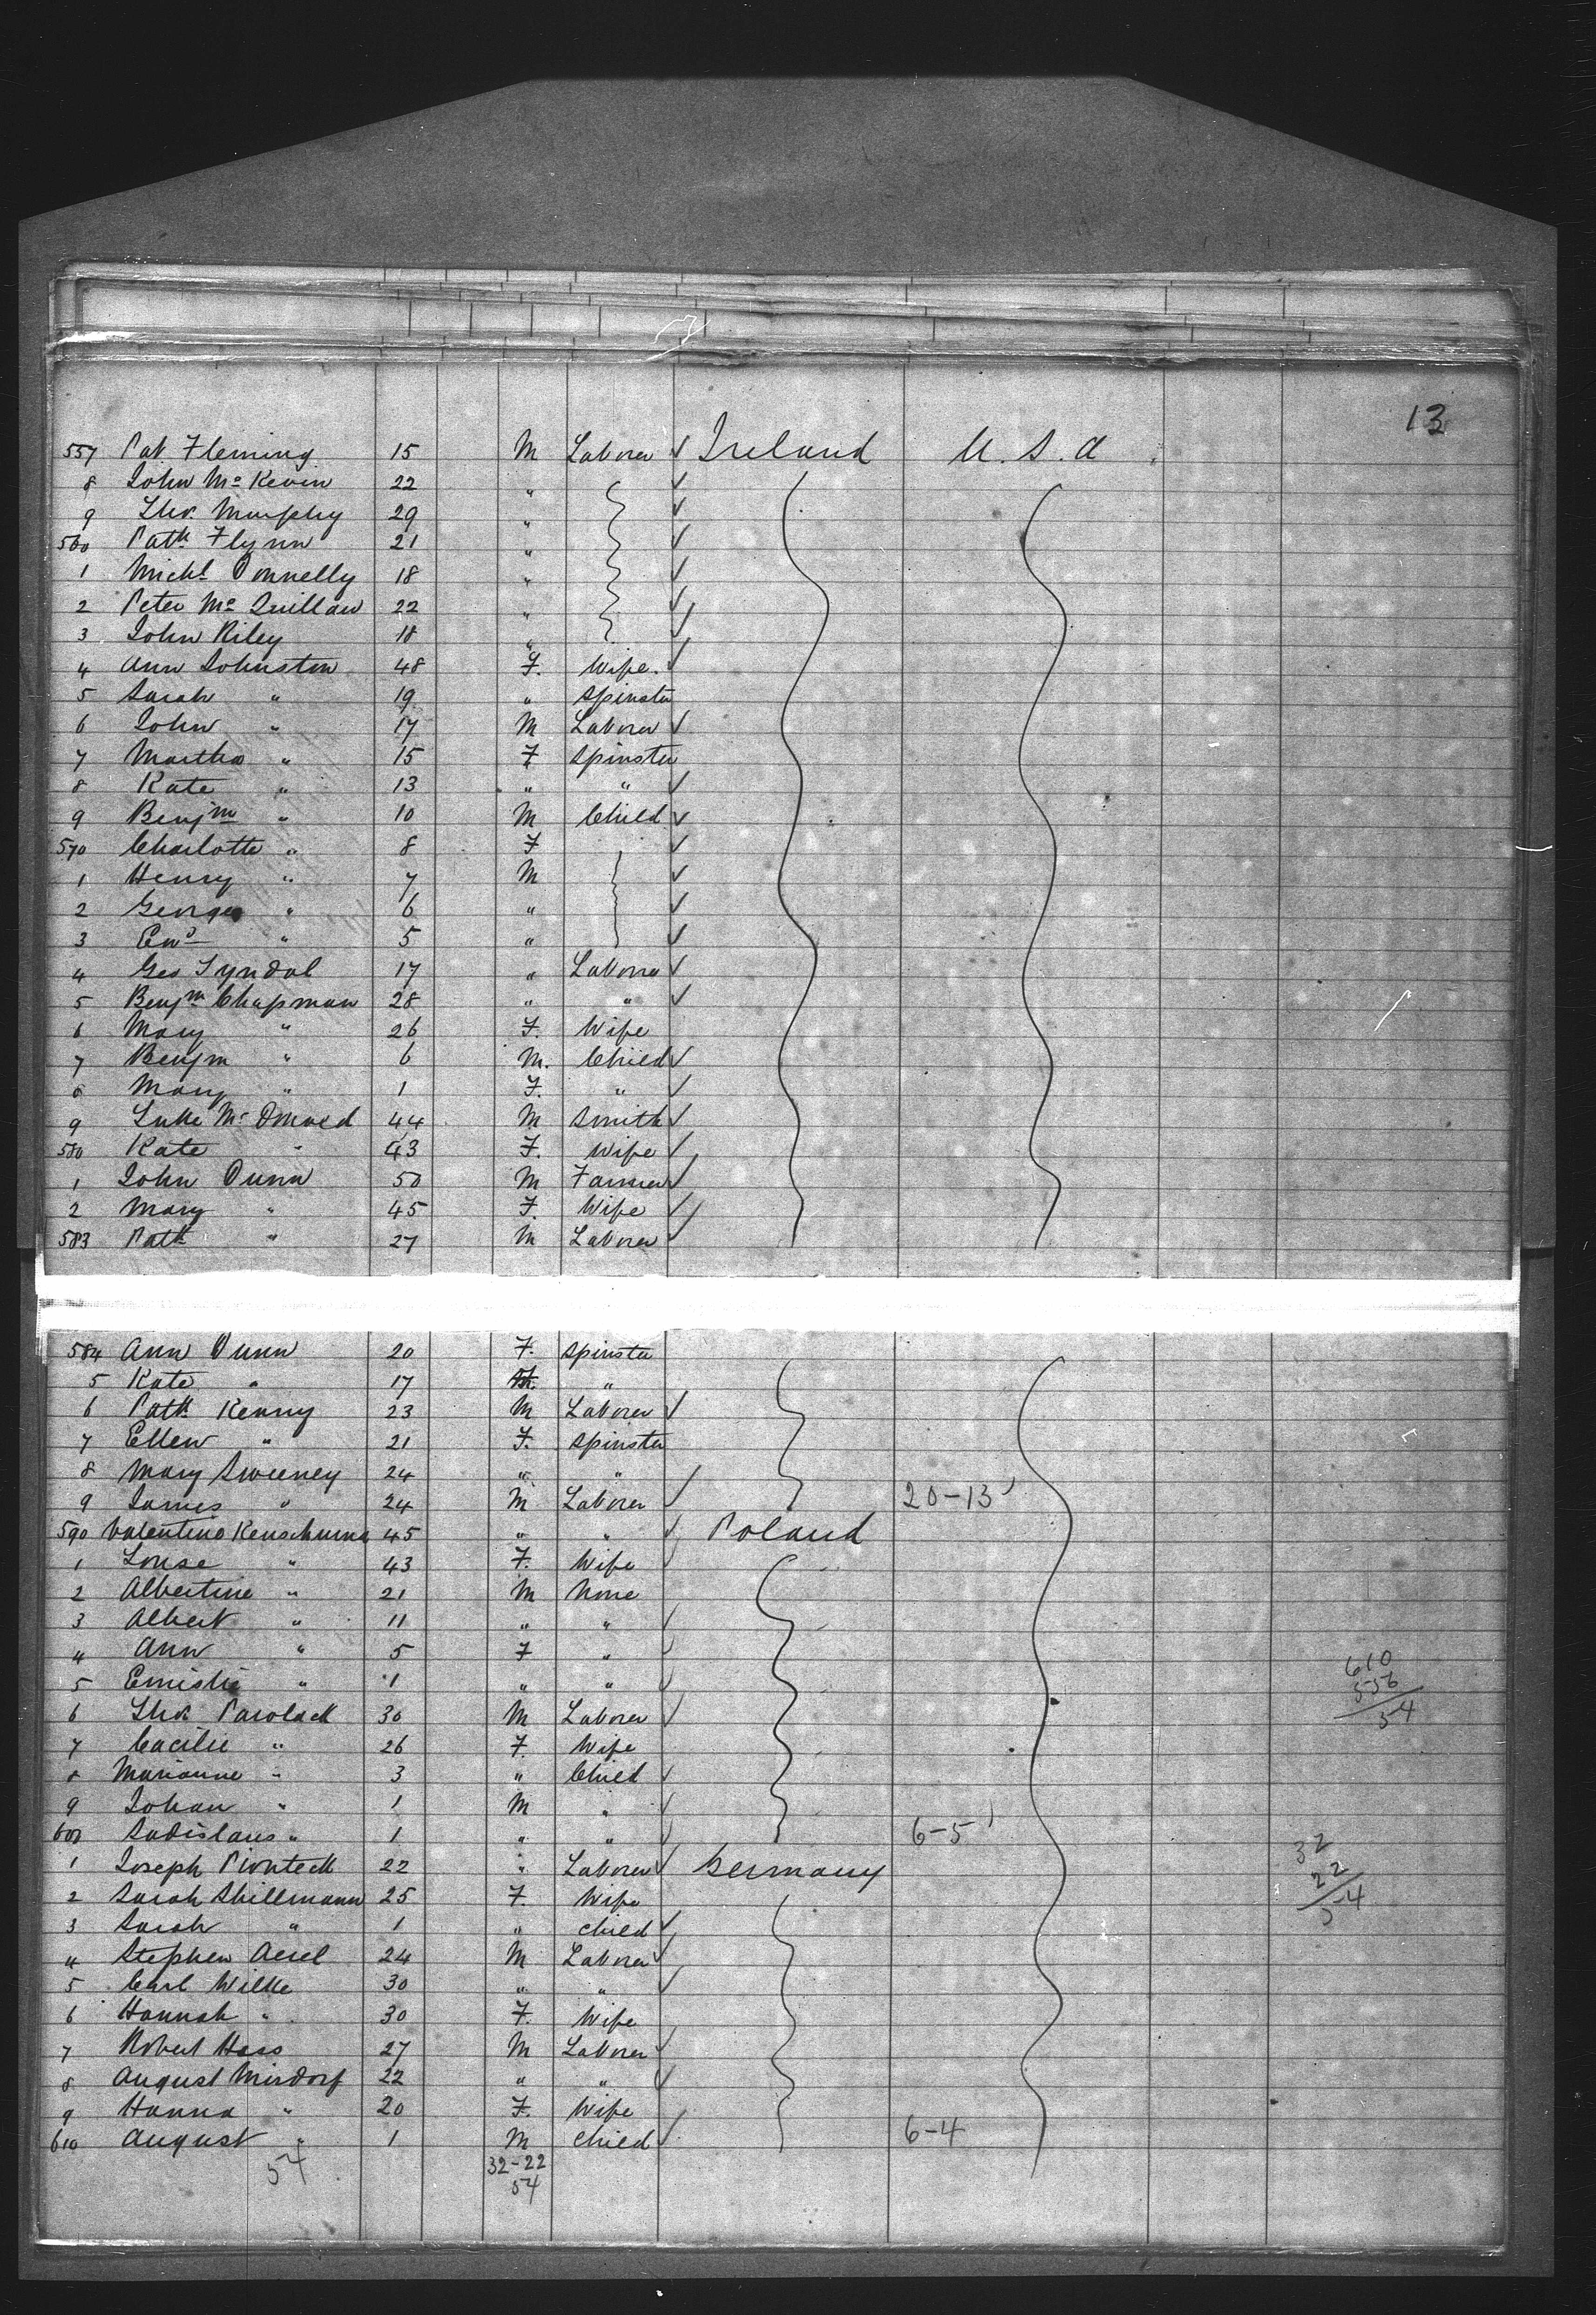 13
557 Pat Fleming 15 M Laborer ✓ Ireland U.S.A.
8 John Mc Kevin 22 " ✓
9 Thos. Murphy 29 " ✓
560 Patk Flynn 21 " ✓
1 Michl Donnelly 18 " ✓
2 Peter Mc Quillan 22 " ✓
3 John Riley 18 " ✓
4 Ann Johnston 48 F. Wife. ✓
5 Sarah " 19 " Spinster
6 John " 17 M Laborer ✓
7 Martha " 15 F Spinster
8 Kate " 13 " " ✓
9 Benjm " 10 M Child ✓
570 Charlotte " 8 F ✓
1 Henry " 7 M ✓
2 George " 6 " ✓
3 " 5 " ✓
4 Geo Tyndal 17 " Laborer ✓
5 Benjm Chapman 28 " " ✓
6 Mary " 26 F. Wife
7 Benjm " 6 M. Child ✓
8 Mary " 1 F. " ✓
9 Luke Mc Donald 44 M Smith ✓
580 Kate " 43 F. Wife ✓
1 John Dunn 50 M Farmer ✓
2 Mary " 45 F. Wife ✓
583 Patk " 27 M Laborer ✓
584 Ann Dunn 20 F. Spinster
5 Kate " 17 "
6 Patk Kenny 23 M Laborer ✓
7 Ellen " 21 F. Spinster
8 Mary Sweeney 24 " " ✓
9 James " 24 M Laborer ✓ 20-13
590 Valentino 45 " " ✓ Poland
1 Louse " 43 F. Wife ✓
2 Albertine " 21 M None
3 Albert " 11 " " ✓
4 Ann " 5 F " ✓
610
5 " 1 " " ✓
556
6 Thos. Parolack 30 M Laborer ✓
54
7 Cacilie " 26 F. Wife
8 Marianne " 3 " Child ✓
9 Johan " 1 M " ✓
600 Ladislaus " 1 " " ✓ 6-5
32
1 Joseph Pionteck 22 " Laborer ✓ Germany
22
2 Sarah Skillmann 25 F. Wife
54
3 Sarah " 1 " Child ✓
4 Stephen 24 M Laborer ✓
5 Carl Wilke 30 " " ✓
6 Hannah " 30 F. Wife
7 Robert Hass 27 M Laborer ✓
8 August Misdorf 22 " " ✓
9 Hanna " 20 F. Wife
610 August " 1 M Child ✓ 6-4
54 32-22
54